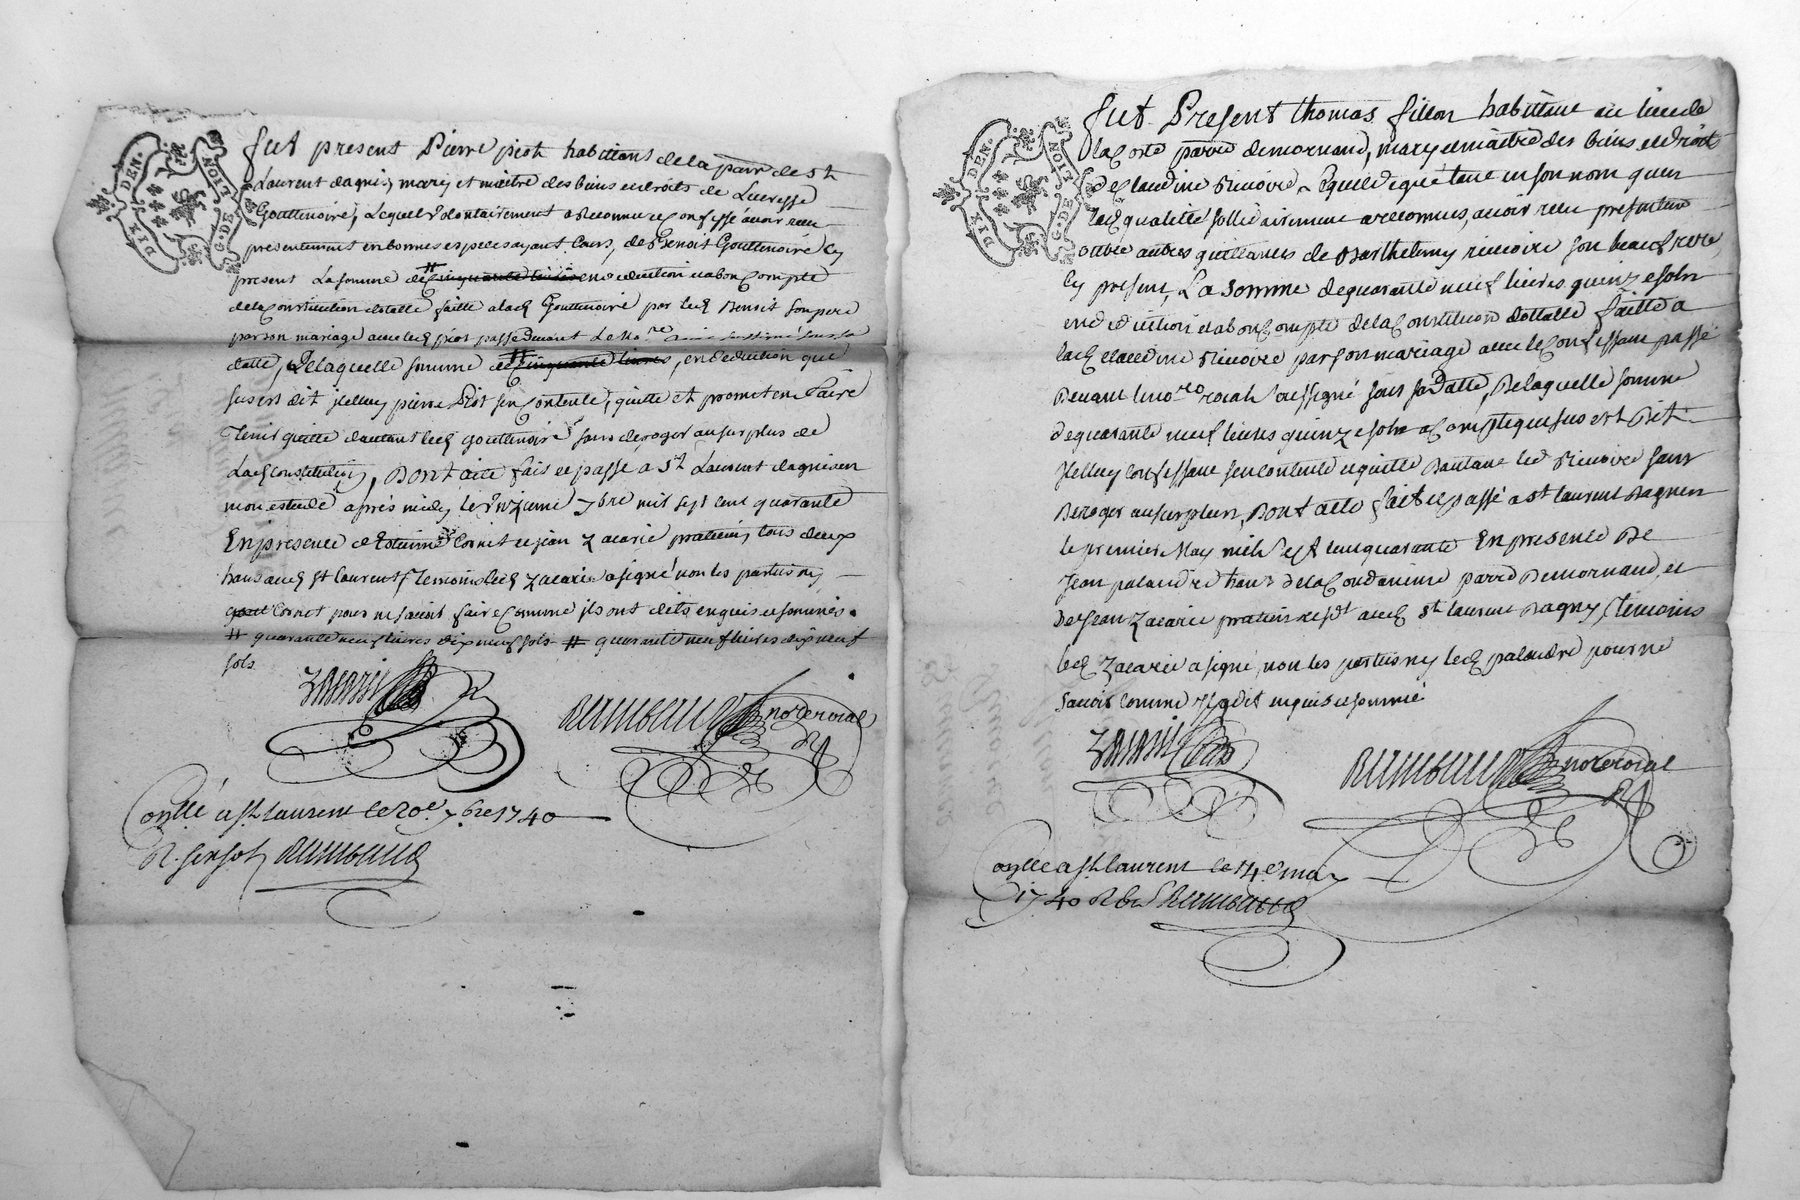 DIX DEN. G. DE NOIT
fut present Pierre piot habittans de la parr de St
Laurent dagnis, mary et maitre des biens et droits de Lucresse
Gouttenoire, Lequel volontairement a reconnu et confessé avoir receu
presentement en bonnes especes ayant cours, de Benoit Gouttenoire cy
present La somme de # cinquante livres en deduction et a bon compte
de la constitution dotalle faitte a lad Gouttenoire par led Benoit son pere
par son mariage avec led piot passé devant Le no.re sous sa
datte, De laquelle somme de # cinquante livres, en deduction que
susest dit jlelluy pierre Piot sen contente, quitte et promet en faire
Tenir quitte dautant led gouttenoire sans deroger au surplus de
Lad constitution, Dont acte fait et passé a St Laurent dagnis en
mon estude aprés midy le 7bre mil sept cent quarante
En presence de Estienne Cornet et jean Zacarie praticien, tous deux
hans aud St laurent Temoins led Zacarie a signé non les parties ny
Cornet pour ne savoir faire comme ils ont dit enquis et sommés.
# quarante neuf livres dix neuf sols # quarante neuf livres dix neuf
sols
Zacarie
Rambaud nore roial
Conllé a St laurent le 20e 7bre 1740
R. six sols Rambaud
DIX DEN. G. DE NOIT
fut Present thomas fillon habittant au lieu de
la coste parre de mornand, mary et maitre des biens et droits
de Claudine rivoire, Lequel de que tant en son nom quen
lad qualité sollidairement a reconnus, avoir receu presentem
outre autres quittances de Barthelemy rivoire son beaufrere,
Cy present, La somme de quarante neuf livres quinze sols
en deduction et a bon compte de la Constitution dottalle faitte a
lad claudine Rivoire par son mariage avec le confessant passé
Devant le no.re roial soussigné sous sa datte, De laquelle somme
de quarante neuf livres quinze sols a compte que sus est Dit
jlelluy confessant sen contente et quitte Dautant led Rivoire sans
Deroger au surplus, Dont acte fait et passé a St laurent Dagnis
le premier May mil sept cent quarante En presence De
Jean palandre han de la Condamine parre De mornand, et
De Jean Zacarie praticien resdt aud St laurent Dagny, Temoins
led Zacarie a signé, non les parties ny led palandre pour ne
savoir comme jls ont dit enquis et sommé
Zacarie
Rambaud nore roial
Conllé a St laurent le 14e may
1740 R Rambaud